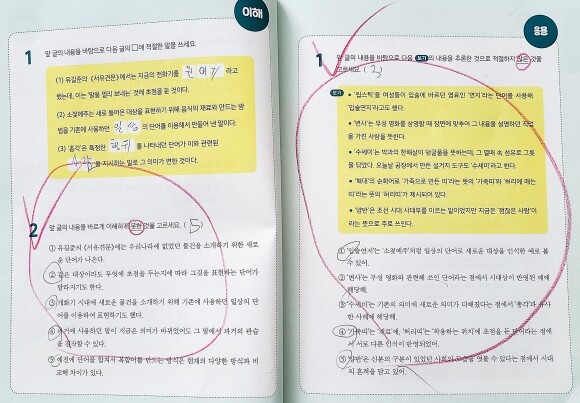 이해
1 앞 글의 내용을 바탕으로 다음 글의 □에 적절한 말을 쓰세요.
(1) 유길준의 《서유견문》에서는 지금의 전화기를 원어기 라고
했는데, 이는 '말을 멀리 보내는' 것에 초점을 둔 것이다.
(2) 소젖메주는 새로 들어온 대상을 표현하기 위해 음식의 재료와 만드는 방
법을 기존에 사용하던 일상 의 단어를 이용해서 만들어 낸 말이다.
(3) '총각'은 특정한 를 나타내던 단어가 이와 관련된
사람 을 지시하는 말로 그 의미가 변한 것이다.
2 앞 글의 내용을 바르게 이해하지 못한 것을 고르세요. ( 5 )
① 유길준의 《서유견문》에는 우리나라에 없었던 물건을 소개하기 위한 새로
운 단어가 나온다.
② 같은 대상이라도 무엇에 초점을 두는지에 따라 그것을 표현하는 단어가
달라지기도 한다.
③ 개화기 시대에 새로운 물건을 소개하기 위해 기존에 사용하던 일상의 단
어를 이용하여 표현하기도 했다.
④ 과거에 사용하던 말이 지금은 의미가 바뀌었어도 그 말에서 과거의 관습
을 짐작할 수 있다.
⑤ 예전에 단어를 합쳐서 복합어를 만드는 방식은 현재의 다양한 방식과 비
교해 차이가 있다.
응용
1 앞 글의 내용을 바탕으로 다음 보기의 내용을 추론한 것으로 적절하지 않은 것을
고르세요. ( 3 )
보기
• '립스틱'을 여성들이 입술에 바르던 염료인 '연지'라는 단어를 사용해
'입술연지'라고도 했다.
• '변사'는 무성 영화를 상영할 때 장면에 맞추어 그 내용을 설명하던 직업
을 가진 사람을 뜻한다.
• '수세미'는 박과의 한해살이 덩굴풀을 뜻하는데, 그 열매 속 섬유로 그릇
을 닦았다. 오늘날 공장에서 만든 설거지 도구도 '수세미'라고 한다.
• '혁대'의 순화어로 '가죽으로 만든 띠'라는 뜻의 '가죽띠'와 '허리에 매는
띠'라는 뜻의 '허리띠'가 제시되어 있다.
• '양반'은 조선 시대 사대부를 이르는 말이었지만 지금은 '괜찮은 사람'이
라는 뜻으로 주로 쓰인다.
① '입술연지'는 '소젖메주'처럼 일상의 단어로 새로운 대상을 인식한 예로 볼
수 있어.
② '변사'는 무성 영화와 관련해 쓰인 단어라는 점에서 시대상이 반영된 예에
해당해.
③ '수세미'는 기존의 의미에 새로운 의미가 더해졌다는 점에서 '총각'과 유사
한 사례에 해당해.
④ '가죽띠'는 '재료'에, '허리띠'는 '착용하는 위치'에 초점을 둔 단어라는 점에
서 서로 다른 인식이 반영되었어.
⑤ '양반'은 신분의 구분이 있었던 사회의 모습을 엿볼 수 있다는 점에서 시대
의 흔적을 담고 있어.